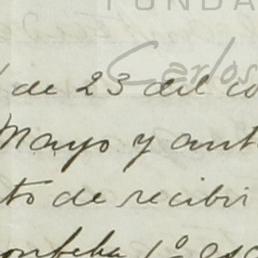 FUNDA
Carlos
de 23 del co
Mayo y ant
to de recibir